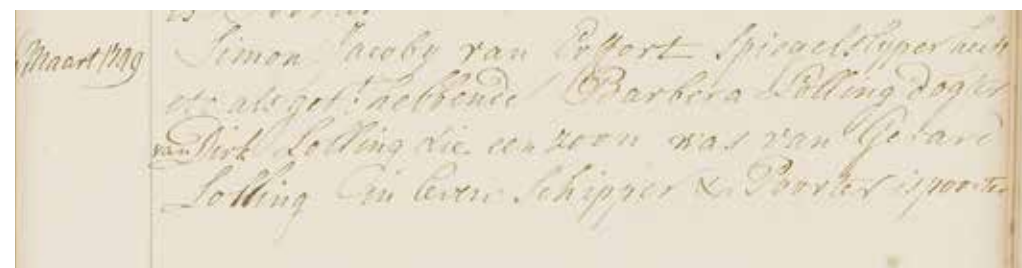 Maart 1799 Simon Jacoby van Erffort Spiegelslyper heeft
etc als get.t hebbende Barbera Lolling dogter
van Dirk Lolling die een zoon was van Gerard
Lolling in leven Schipper & Poorter is poorter